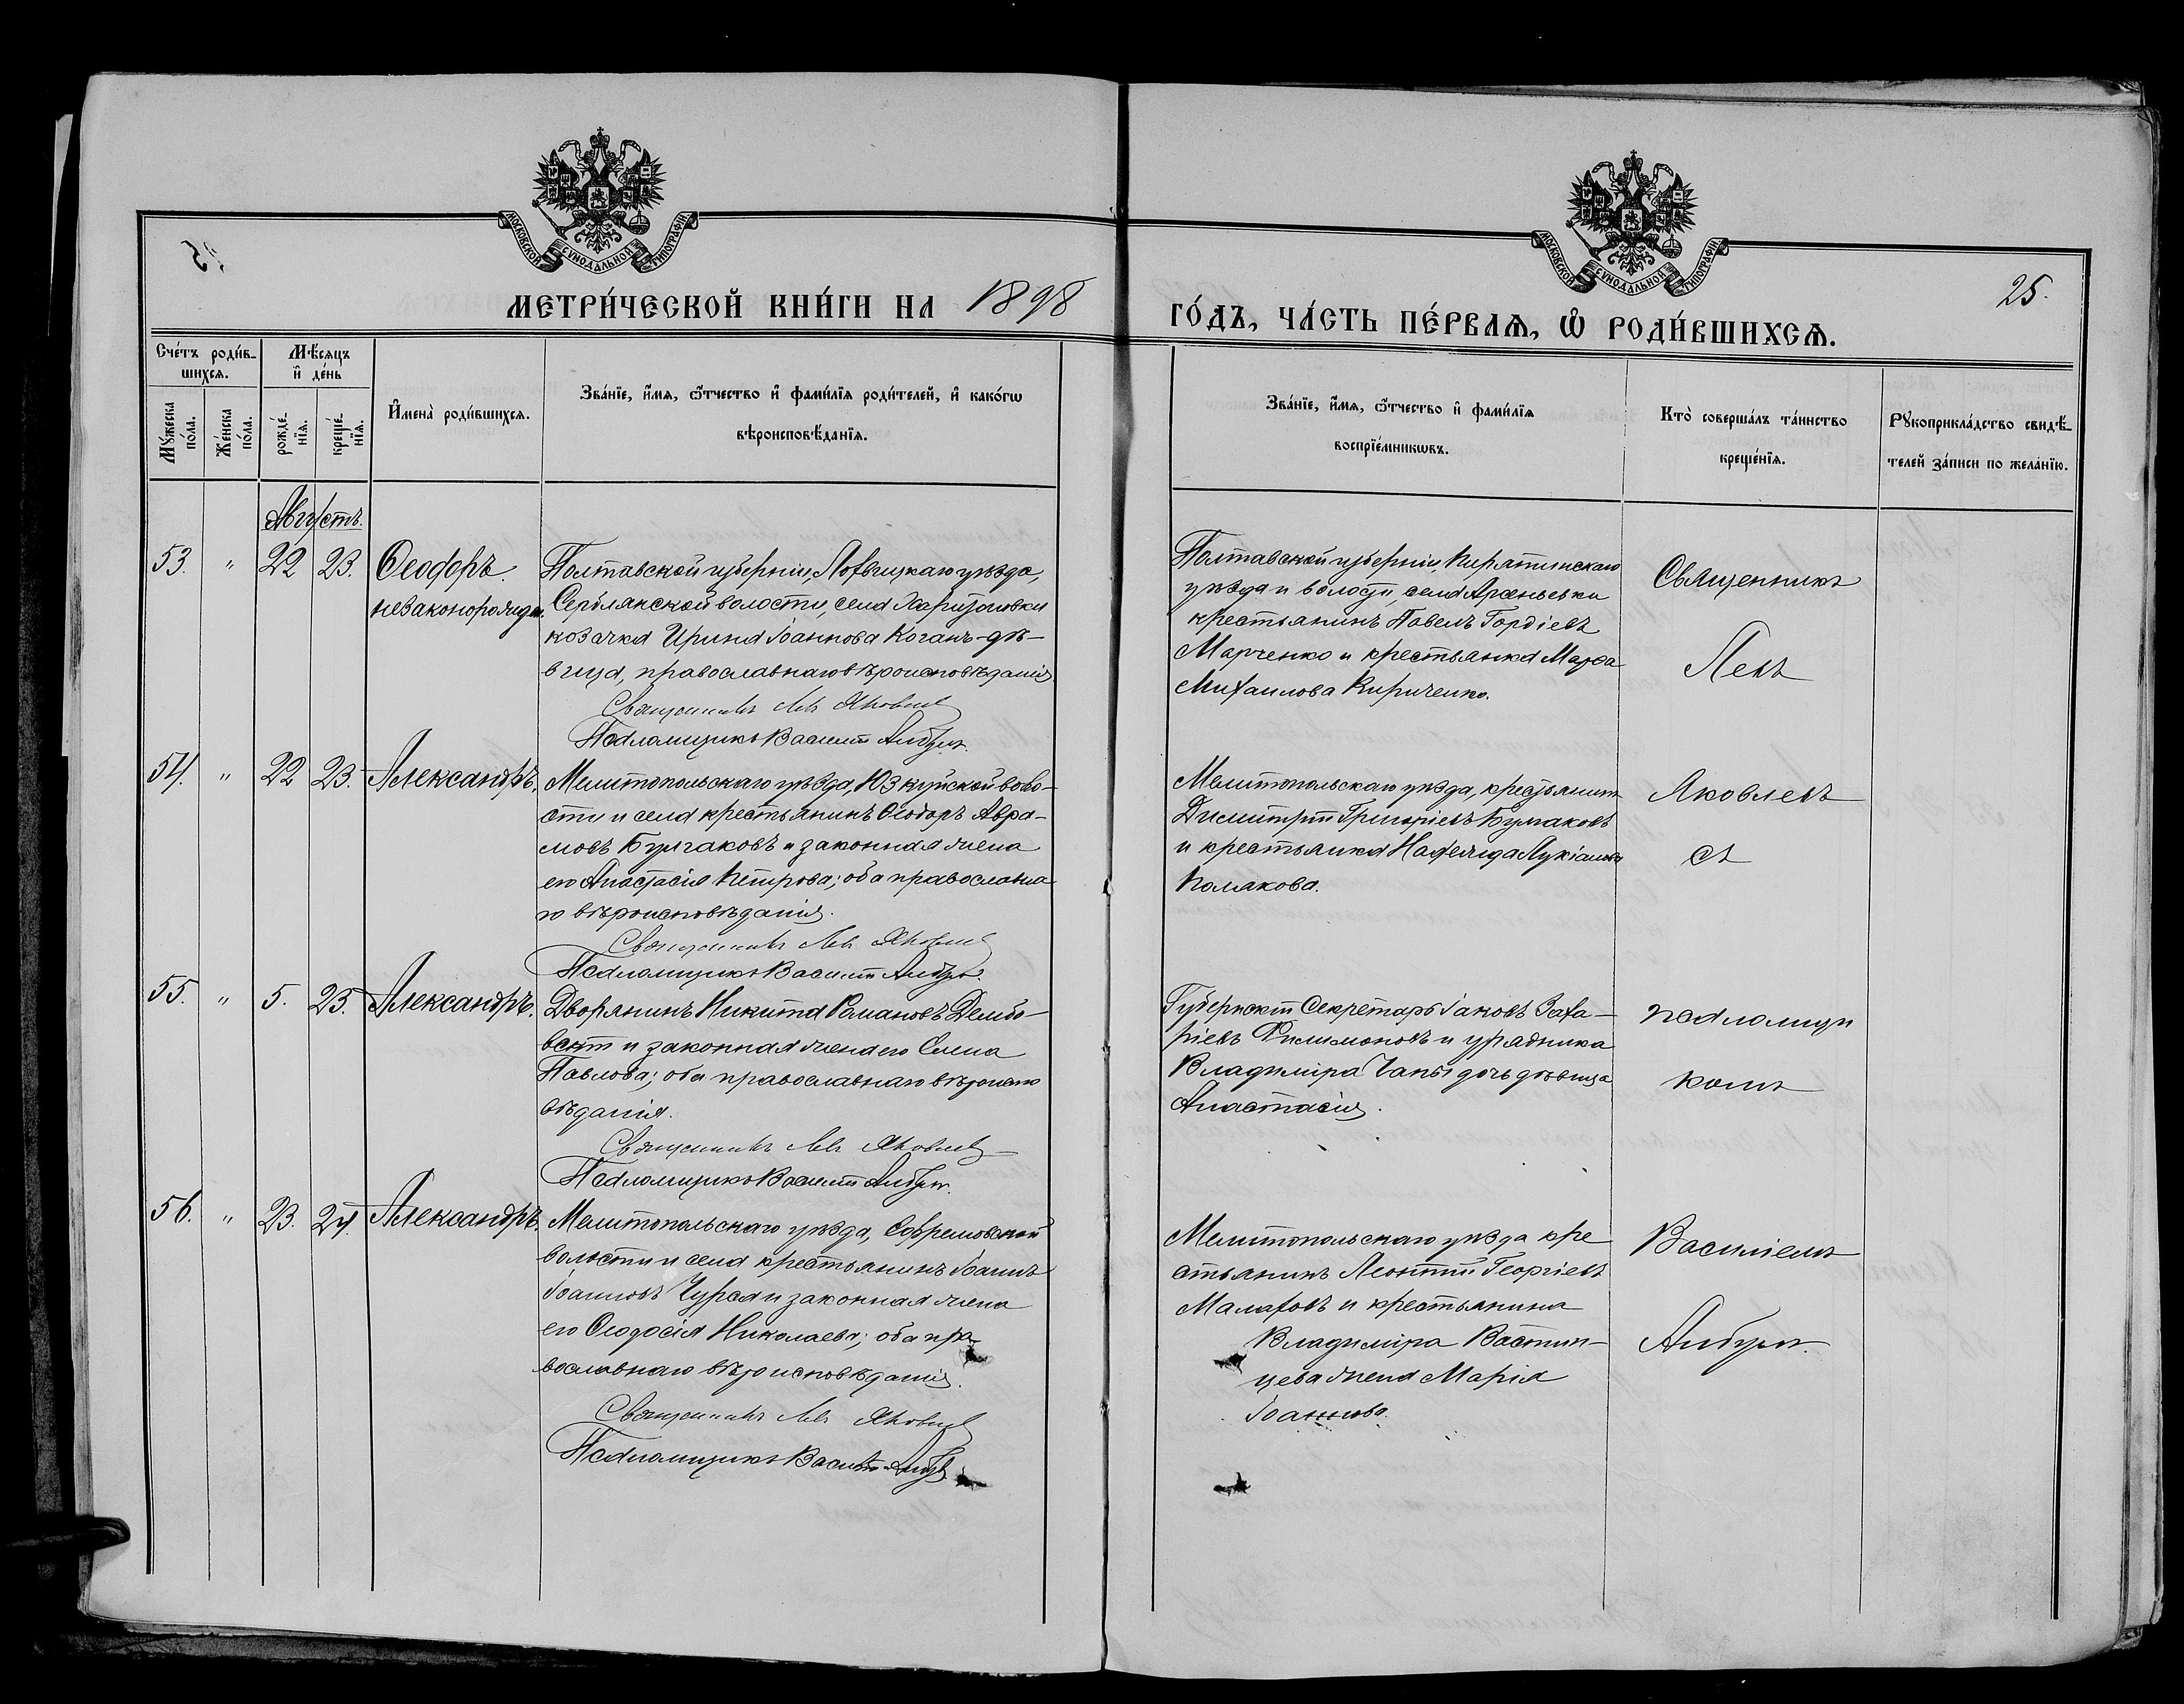 МОСКОВСКОЙ СѴНОДАЛЬНОЙ ТИПОГРАФІИ
МОСКОВСКОЙ СѴНОДАЛЬНОЙ ТИПОГРАФІИ
25.
МЕТРИ́ЧЕСКОЙ КНИ́ГИ НА 1898 ГО́ДЪ, ЧА́СТЬ ПЕ́РВАѦ, Ѡ҆ РОДИ́ВШИХСѦ.
Сче́тъ роди́в-
шихсѧ.
Мѣ́сѧцъ
и҆ де́нь
Мꙋ́жеска
по́ла.
Же́нска
по́ла.
рожде́-
нїѧ.
креще́-
нїѧ.
И҆мена̀ роди́вшихсѧ.
Зва́нїе, и҆́мѧ, ѻ҆́тчество и҆ фами́лїѧ роди́телей, и҆ како́гѡ
вѣроисповѣ́данїѧ.
Зва́нїе, и҆́мѧ, ѻ҆́тчество и҆ фами́лїѧ
воспрїе́мникѡвъ.
Кто̀ соверша́лъ та́инство
креще́нїѧ.
Рꙋкоприкла́дство свидѣ́-
телей за́писи по жела́нїю.
Августъ.
53. " 22 23. Ѳеодоръ.
незаконорожден.
Полтавской губерніи, Лохвицкаго уѣзда,
волости, села
козачка Ирина Іоаннова Коганъ-дѣ-
вица, православнаго вѣроисповѣданія
Священникъ Левъ Яковлевъ
Псаломщикъ Василій
Полтавской губерніи, Пирятинскаго
уѣзда и волости, села
крестьянинъ Павелъ Гордіевъ
Марченко и крестьянка Марѳа
Михаилова Кириченко.
Священникъ
Левъ
54. " 22 23. Александръ.
Мелитопольскаго уѣзда, Юзкуйской воло-
сти и села крестьянинъ Ѳеодоръ Авра-
мовъ Булгаковъ и законная жена
его Анастасія Петрова; оба православна-
го вѣроисповѣданія.
Священникъ Левъ Яковлевъ
Псаломщикъ Василій
Мелитопольскаго уѣзда, крестьянинъ
Димитрій Григорьевъ
и крестьянка Надежда Лукіанова
Полякова.
Яковлевъ
съ
55. " 5. 23. Александръ.
Дворянинъ Никита Романовъ Дембо-
вскій и законная жена его Елена
Павлова; оба православнаго вѣроиспо
вѣданія.
Священникъ Левъ Яковлевъ
Псаломщикъ Василій
Губернскій Секретарь Іаковъ Заха-
ріевъ Филимоновъ и урядника
Владиміра Чапы дочь дѣвица
Анастасія.
псаломщи
комъ
56. " 23. 24. Александръ.
Мелитопольскаго уѣзда, Ефремовской
волости и села крестьянинъ Іоаннъ
Іоанновъ Чурса и законная жена
его Ѳеодосія Николаева; оба пра-
вославнаго вѣроисповѣданія.
Священникъ Левъ Яковлевъ
Псаломщикъ Василій
Мелитопольскаго уѣзда кре
стьянинъ Леонтій Георгіевъ
Малаховъ и крестьянина
Владиміра
жена Марія
Іоаннова.
Василіемъ